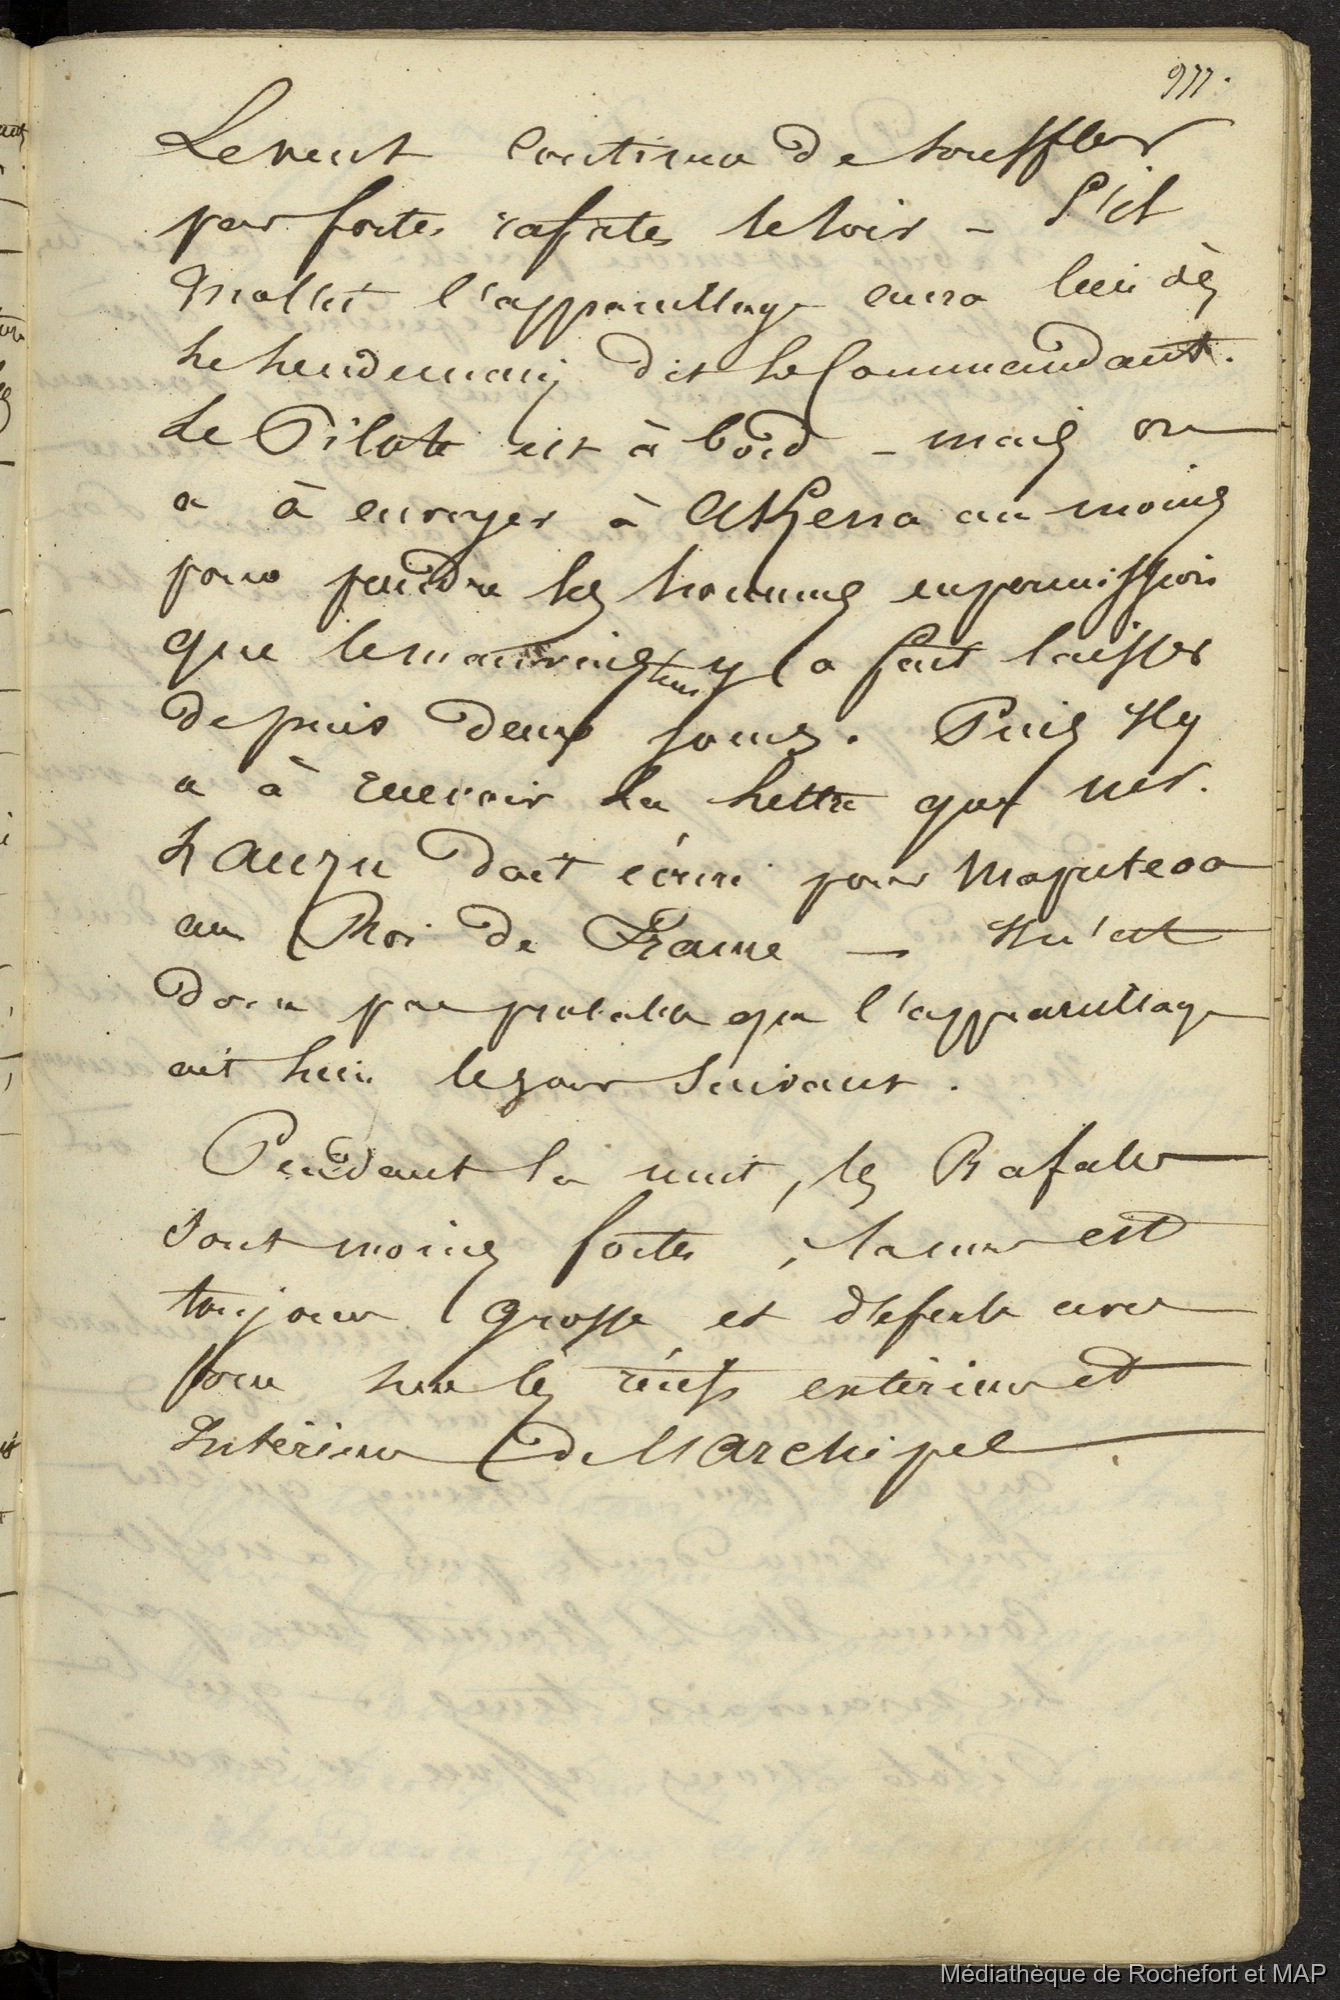 977.
Le vent continua de souffler
par fortes rafales le soir – S'il
mollit l'appareillage aura lieu dès
le lendemain dit le Commandant.
Le Pilote est à bord – mais on
a à envoyer à au moins
pour prendre les hommes en permission
que le mauvais temps y a fait laisser
depuis deux jours. Puis il y
a à recevoir la lettre que mr.
Lauzu doit écrire pour Maputeoa
au Roi de France — Il n'est
donc pas probable que l'appareillage
ait lieu le jour suivant.
Pendant la nuit, les Rafales
sont moins fortes ; la mer est
toujours grosse et déferle avec
force sur les récifs extérieur et
Intérieur de l'Archipel
Médiathèque de Rochefort et MAP